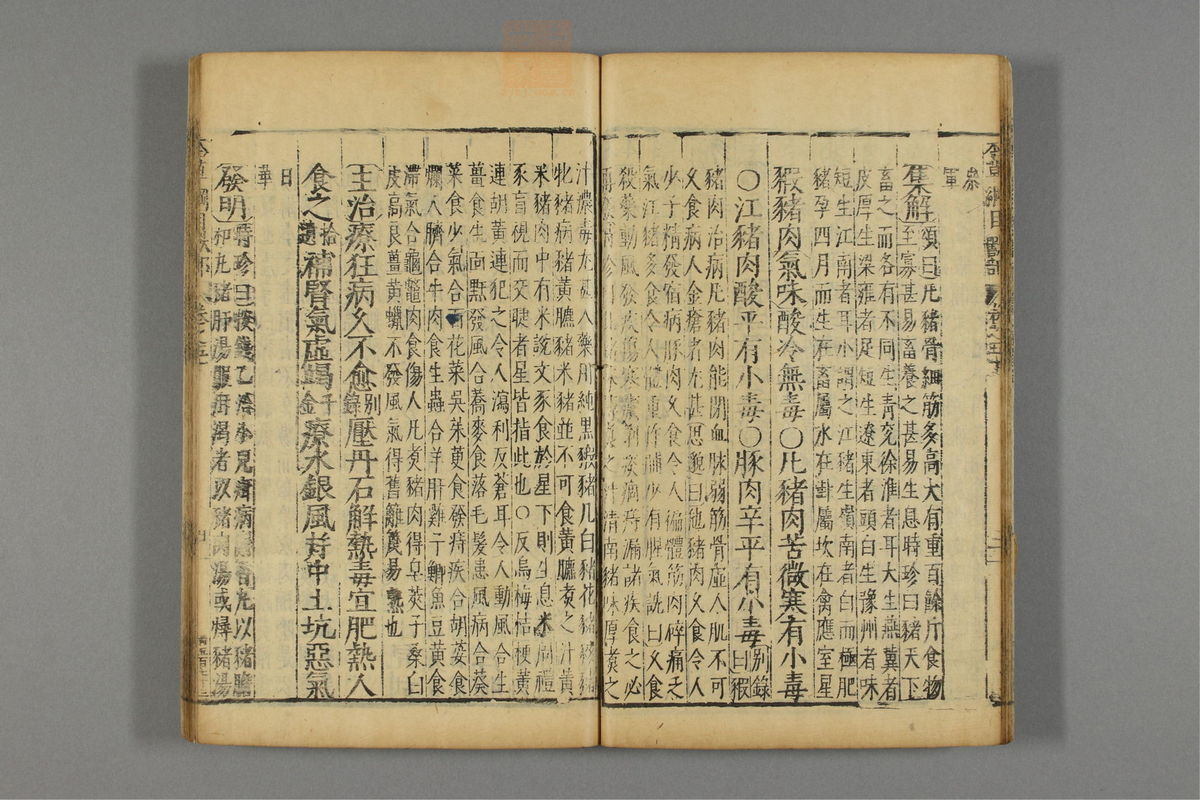 叅軍
集解頌曰凡豬骨細筋多高大有重百餘斤食物
至寡甚易畜養之甚易生息時珍曰豬天下
畜之而各有不同生青兗徐淮者耳大生燕冀者
皮厚生梁雍者足短生遼東者頭白生豫州者味
短生江南者耳小謂之江豬生嶺南者白而極肥
豬孕四月而生在畜屬水在卦屬坎在禽應室星
豭豬肉氣味酸冷無毒〇凡豬肉苦微寒有小毒
〇江豬肉酸平有小毒〇豚肉辛平有小毒別錄曰豭
豬肉治病凡豬肉能閉血脉弱筋骨虛人肌不可
乆食病人金瘡者尤甚思邈曰凡豬肉乆食令人
少子精發宿病豚肉乆食令人徧體筋肉碎痛乏
氣江豬多食令人體重作脯少有腥氣詵曰乆食
殺藥動風發疾傷寒瘧痢痰痼痔漏諸疾食之必
再發時珍曰 豬 之汁清南豬味厚煑之
汁濃毒尤甚入藥用純黑豭豬凡白豬花豬
牝豬病豬黃膘豬米豬並不可食黃膘煑之汁黃
米豬肉中有米說文豕食於星下則生息米 禮
豕盲視而交睫者星皆指此也〇反烏梅桔梗黃
連胡黃連犯之令人瀉利反蒼耳令人動風合生
薑食生面䵟發風合蕎麥食落毛髮患風病合葵
菜食少氣合百花菜吳茱萸食發痔疾合胡荽食
爛人臍合牛肉食生蟲合羊肝雞子鯽魚豆黃食
滯氣合龜鼈肉食傷人凡煑豬肉得皁莢子桑白
皮高良薑黃蠟不發風氣得舊籬篾易熟也
主治療狂病乆不愈別錄壓丹石解熱毒宜肥熱人
食之拾遺補腎氣虛竭千金療水銀風并中土坑惡氣
日華
發明時珍曰按錢乙治小兒疳病 用豬膽
和尤豬肝湯 疳渴者以豬肉湯或燖豬湯